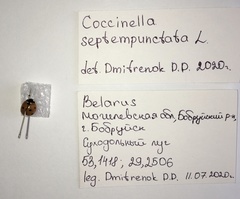 Coccinella
septempunctata L.
det. Dmitrenok D.D. 2020г.
Belarus
Могилевская обл, Бобруйский р-н
г. Бобруйск
Суходольный луг
53,1418; 29,2506
leg. Dmitrenok D.D. 11.07.2020г.